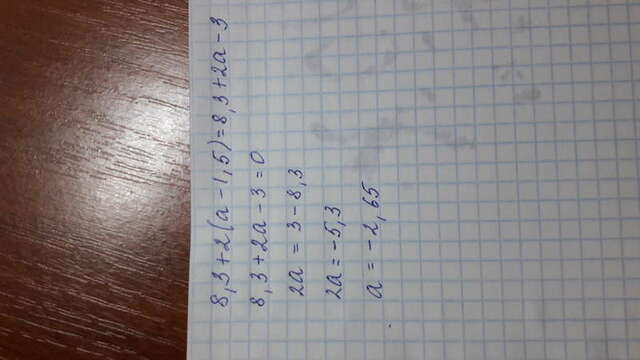 8,3+2(a-1,5)=8,3+2a-3
8,3+2a-3=0
2a = 3-8,3
2a = -5,3
a = -2,65